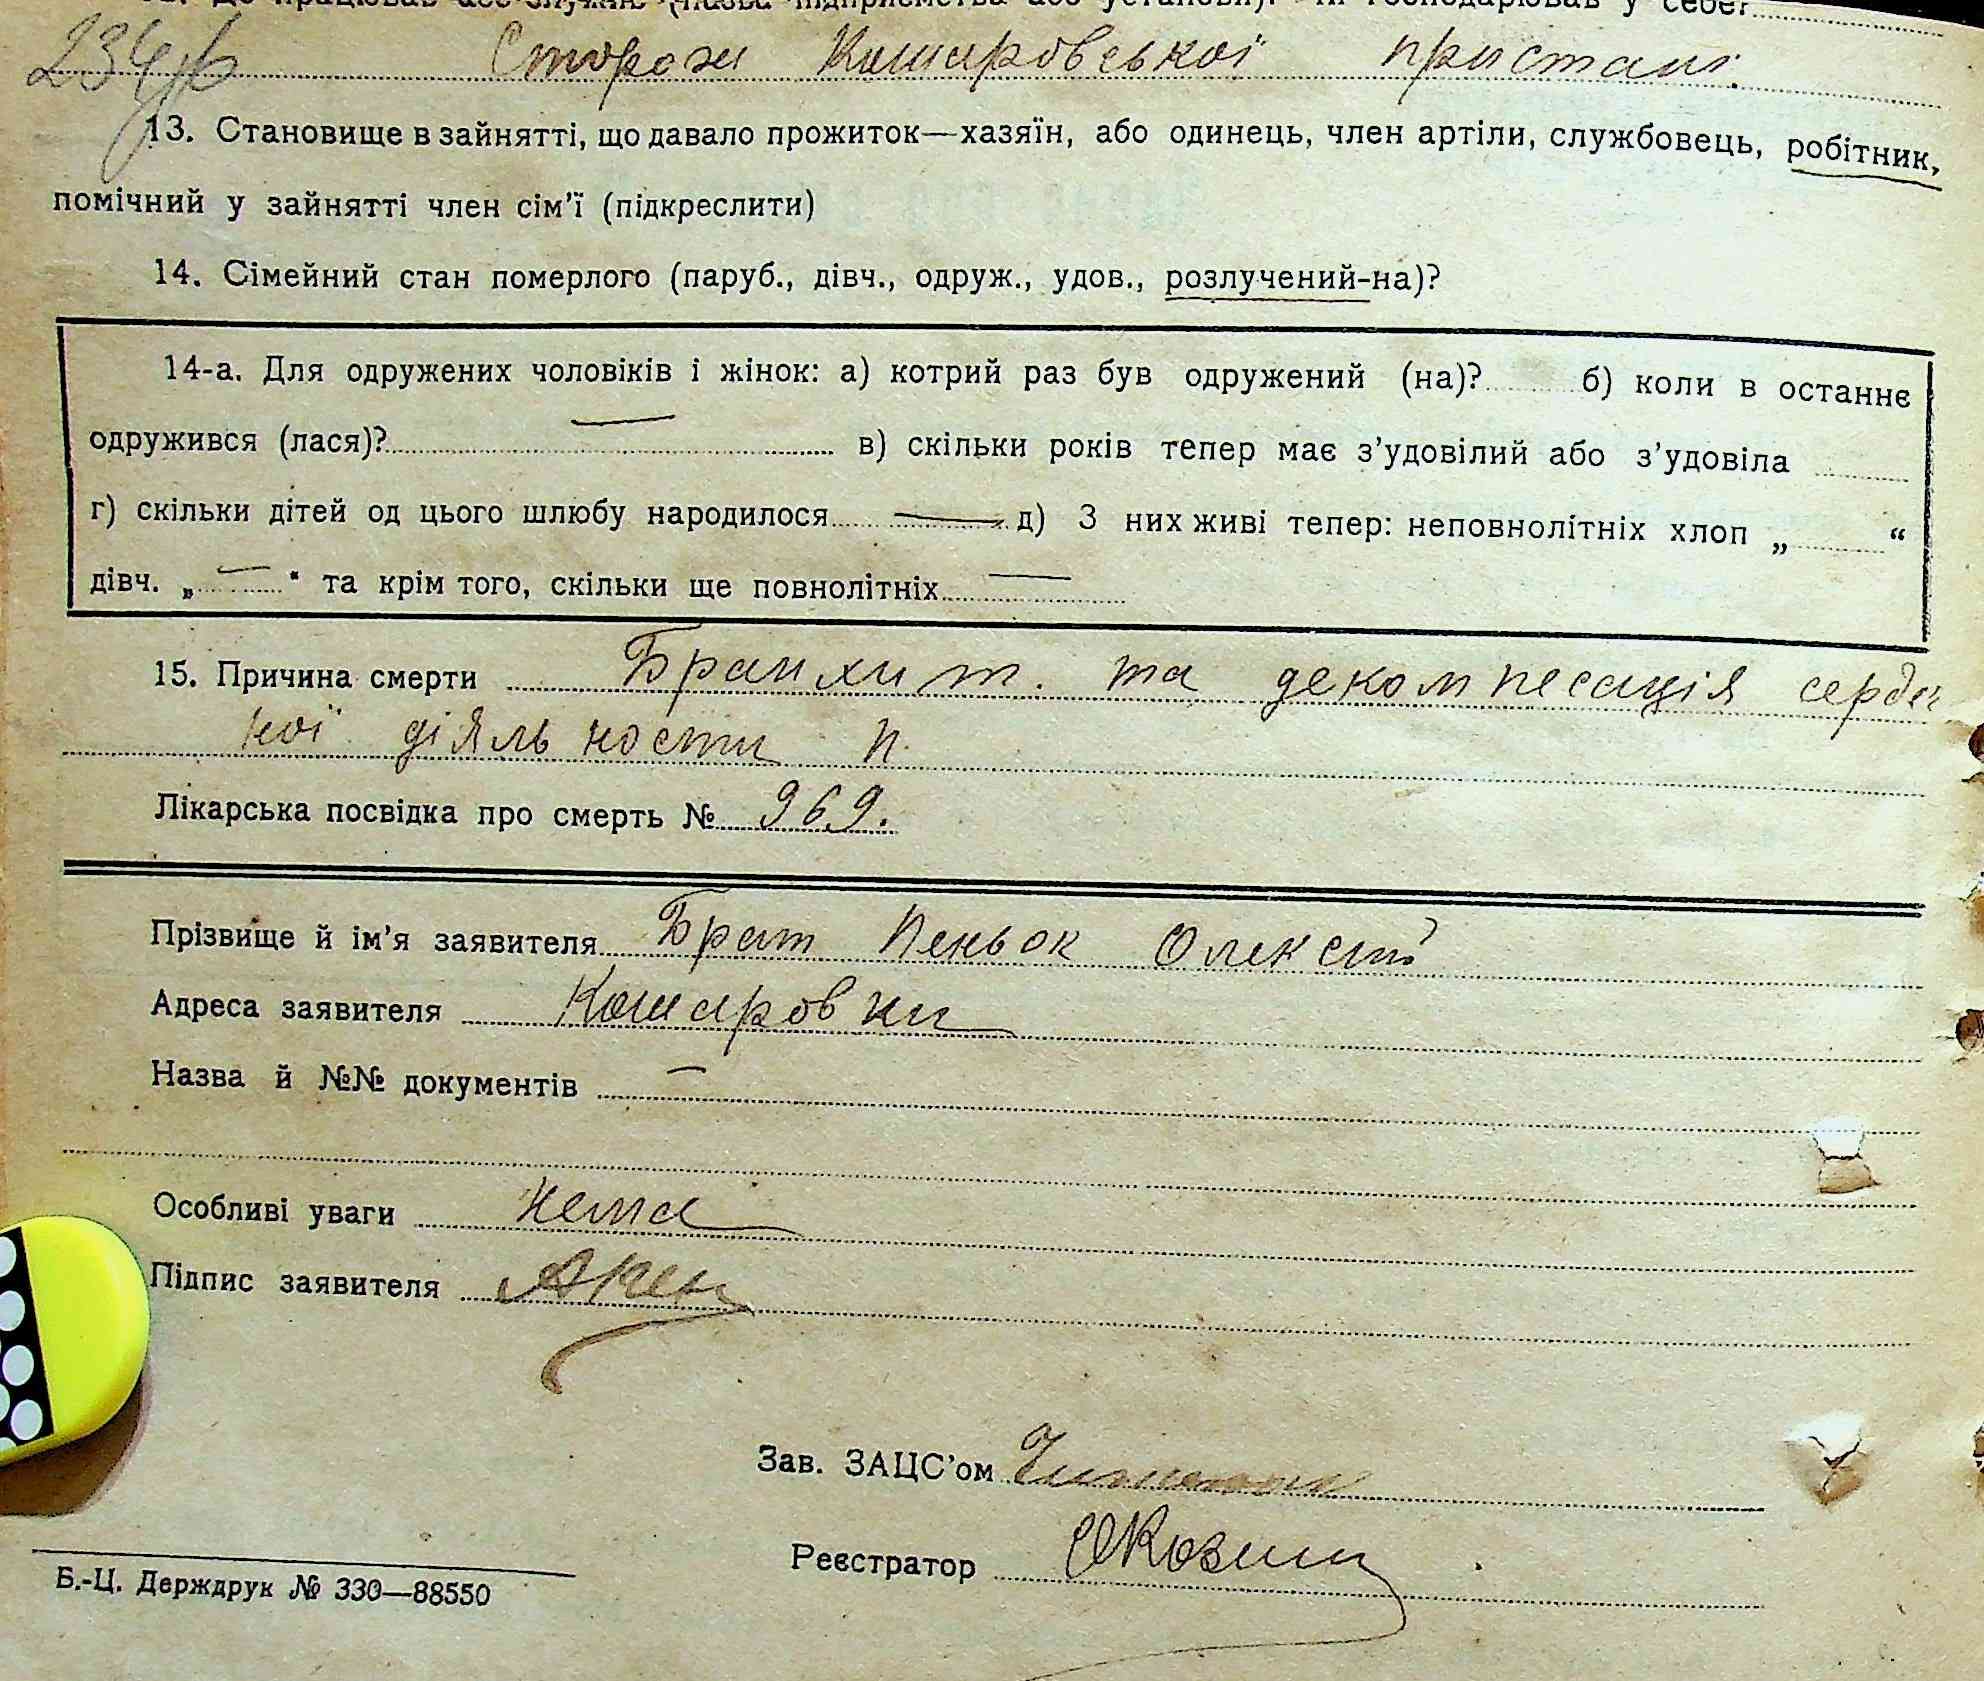 12. Де працював або служив (назва підприємства або установи). Чи господарював у себе?
Сторож Кошаровської пристані.
13. Становище в зайнятті, що давало прожиток—хазяїн, або одинець, член артіли, службовець, робітник,
помічний у зайнятті член сім'ї (підкреслити)
14. Сімейний стан померлого (паруб., дівч., одруж., удов., розлучений-на)?
14-а. Для одружених чоловіків і жінок: а) котрий раз був одружений (на)? б) коли в останнє
одружився (лася)? — в) скільки років тепер має з'удовілий або з'удовіла
г) скільки дітей од цього шлюбу народилося — д) З них живі тепер: неповнолітніх хлоп „ “
дівч. „ — “ та крім того, скільки ще повнолітніх —
15. Причина смерти Бранхит. та декомпесація сердеч
ної діяльности п.
Лікарська посвідка про смерть № 969.
Прізвище й ім'я заявителя Брат Пеньок Олексій
Адреса заявителя Кошаровки
Назва й №№ документів —
Особливі уваги нема
Підпис заявителя АПень
Зав. ЗАЦС'ом
Реєстратор
Б.-Ц. Держдрук № 330—88550